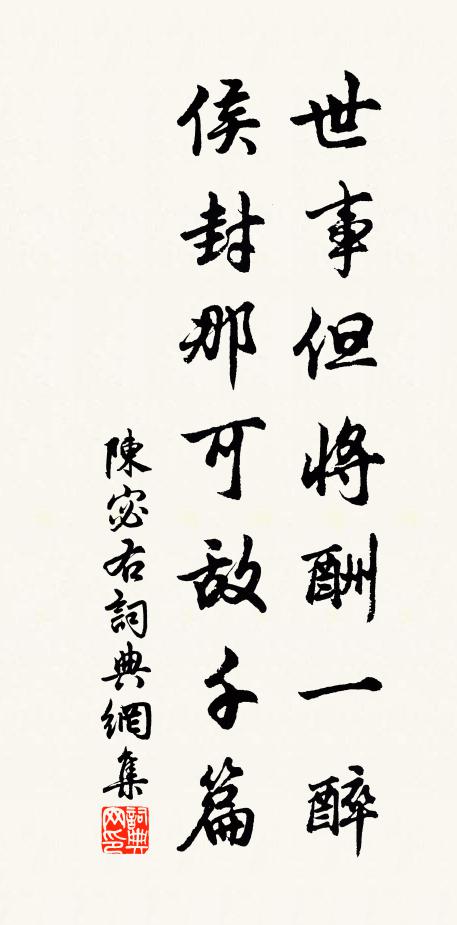 世事但將酬一醉
侯封那可敵千篇
陳宓右詞典網集
詞典網印